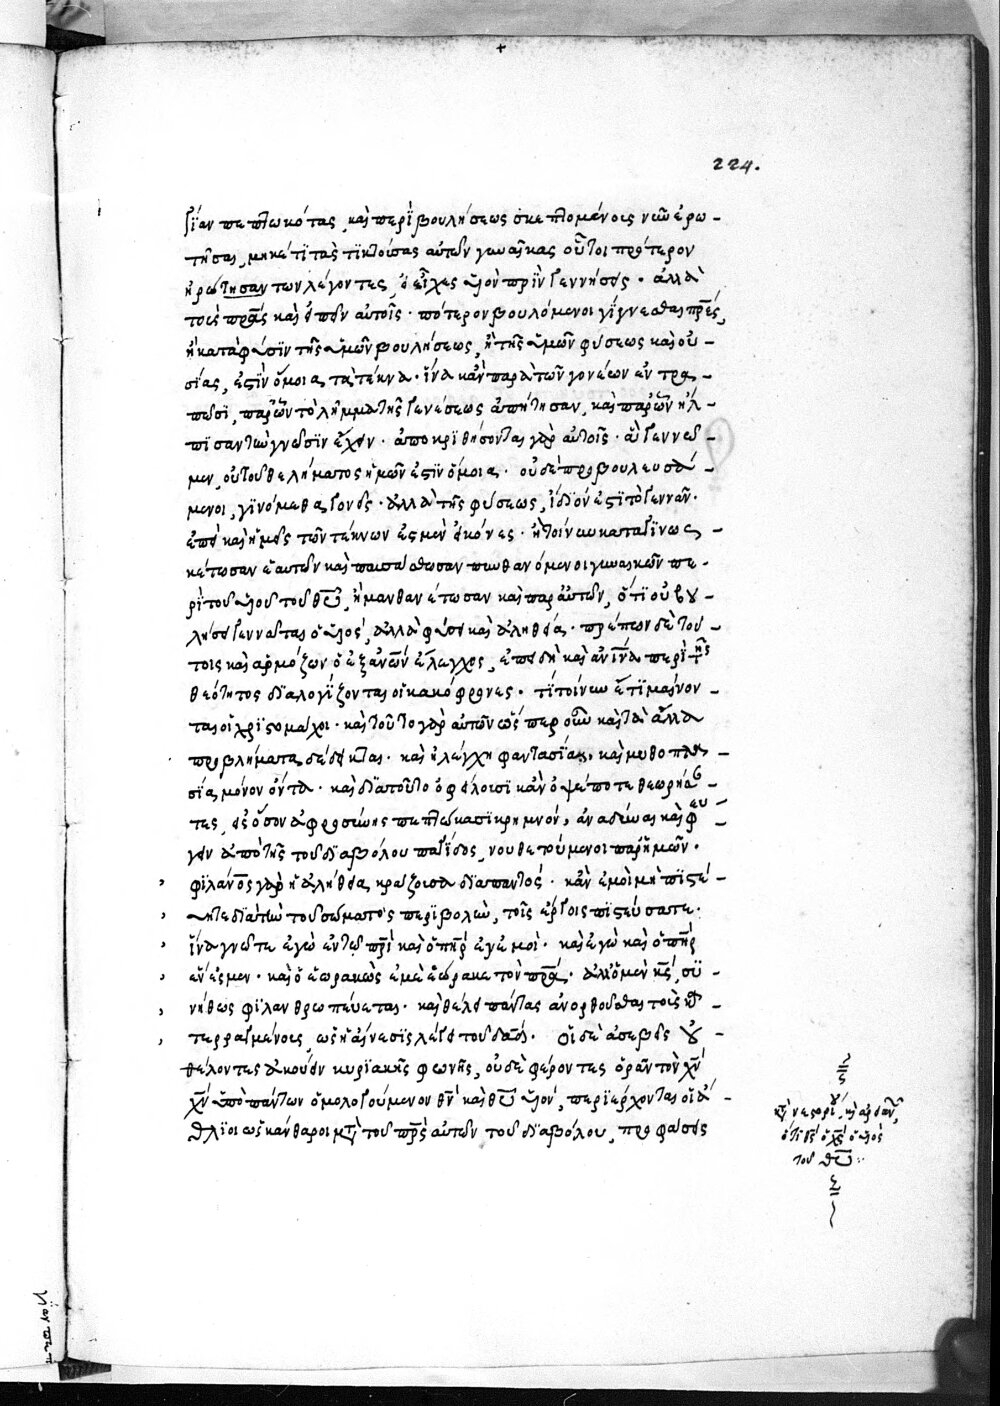 224.
σίαν πεπτωκότας, καὶ περὶ βουλήσεως σκεπτομένοις νῦν ἐρω-
τῆσαι, μηκέτι τὰς τικτούσας αὐτῶν γυναῖκας οὗτοι πρότερον
ἠρώτησαν των λέγοντες, εἰ εἶχες υἱὸν πρὶν γεννήσῃς. ἀλλὰ
τοὺς πρας καὶ εἰπεῖν αὐτοῖς. πότερον βουλόμενοι γίγνεσθαι πρες,
ἢ κατὰ φύσιν τῆς ὑμῶν βουλήσεως, ἢ τῆς ὑμῶν φύσεως καὶ οὐ-
σίας, ἐστὶν ὅμοια τὰ τέκνα. ἵνα κἂν παρὰ τῶν γονέων ἐντρα-
πῶσι, παρ' ὧν τὸ λῆμμα τῆς γενέσεως ἀπῄτησαν, καὶ παρ' ὧν ἤλ-
πισαν τὴν γνῶσιν ἔχειν. ἀποκριθήσονται γὰρ αὐτοῖς. ἃ γεννῶ-
μεν, οὐ τοῦ θελήματος ἡμῶν ἐστὶν ὅμοια. οὐδὲ προβουλευσά-
μενοι, γινόμεθα γονεῖς. ἀλλὰ τῆς φύσεως, ἴδιόν ἐστι τὸ γεννᾶν.
ἐπεὶ καὶ ἡμεῖς τῶν τέκνων ἐσμὲν εἰκόνες. ἢ τοίνυν καταγινωσ-
κέτωσαν ἑαυτῶν καὶ παυσάσθωσαν πυνθανόμενοι γυναικῶν πε-
ρὶ τοῦ υἱοῦ τοῦ θυ, ἢ μανθανέτωσαν καὶ παρ' αὐτῶν, ὅτι οὐ βου-
λήσει γεννᾶται ὁ υἱός, ἀλλὰ φύσει καὶ ἀληθείᾳ. πρέπων δὲ τού-
τοις καὶ ἁρμόζων ὁ ἐξ ανων ἔλεγχος, ἐπειδὴ καὶ ανινα περὶ τῆς
θεότητος διαλογίζονται οἱ κακόφρονες. τί τοίνυν ἔτι μαίνον-
ται οἱ χριστομάχοι. καὶ τοῦτο γὰρ αὐτῶν ὥσπερ οὖν καὶ τὰ ἄλλα
προβλήματα δέδεικται. καὶ ἠλέγχη φαντασία, καὶ μυθοπλα-
σία μόνον ὄντα. καὶ διὰ τοῦτο ὀφείλουσι κἂν ὀψέ ποτε θεωρήσαν-
τες, εἰς ὅσον ἀφροσύνης πεπτώκασι κρημνόν, ἀναδῦναι καὶ φευ-
γεῖν ἀπὸ τῆς τοῦ διαβόλου παγίδος, νουθετούμενοι παρ' ἡμῶν.
φιλανος γὰρ ἡ ἀλήθεια, κράζουσα διαπαντός. κἂν ἐμοὶ μὴ πιστεύ-
ητε διὰ τὴν τοῦ σώματος περιβολὴν, τοῖς ἔργοις πιστεύσατε.
ἵνα γνῶτε ἐγὼ ἐν τῷ πρι καὶ ὁ πηρ ἐν ἐμοί. καὶ ἐγὼ καὶ ὁ πηρ
ἕν ἐσμεν. καὶ ὁ ἑωρακὼς ἐμὲ ἑώρακε τὸν πρα. ἀλλ' ὁ μὲν κς, συ-
νήθως φιλανθρωπεύεται. καὶ θέλει πάντας ἀνορθοῦσθαι τοὺς κα-
τερραγμένους, ὡς ἡ αἴνεσις λέγει τοῦ δαδ. οἱ δὲ ἀσεβεῖς οὐ
θέλοντες ἀκούειν κυριακῆς φωνῆς, οὐδὲ φέροντες ὁρᾶν τὸν χν
χν ὑπὸ πάντων ὁμολογούμενον θν καὶ θυ υἱόν, περιέρχονται οἱ ἄ-
θλιοι ὡς κάνθαροι μετὰ τοῦ πρς αὐτῶν τοῦ διαβόλου, προφάσεις
ὅτι θς ὁ χς ὁ υἱὸς
τοῦ θυ